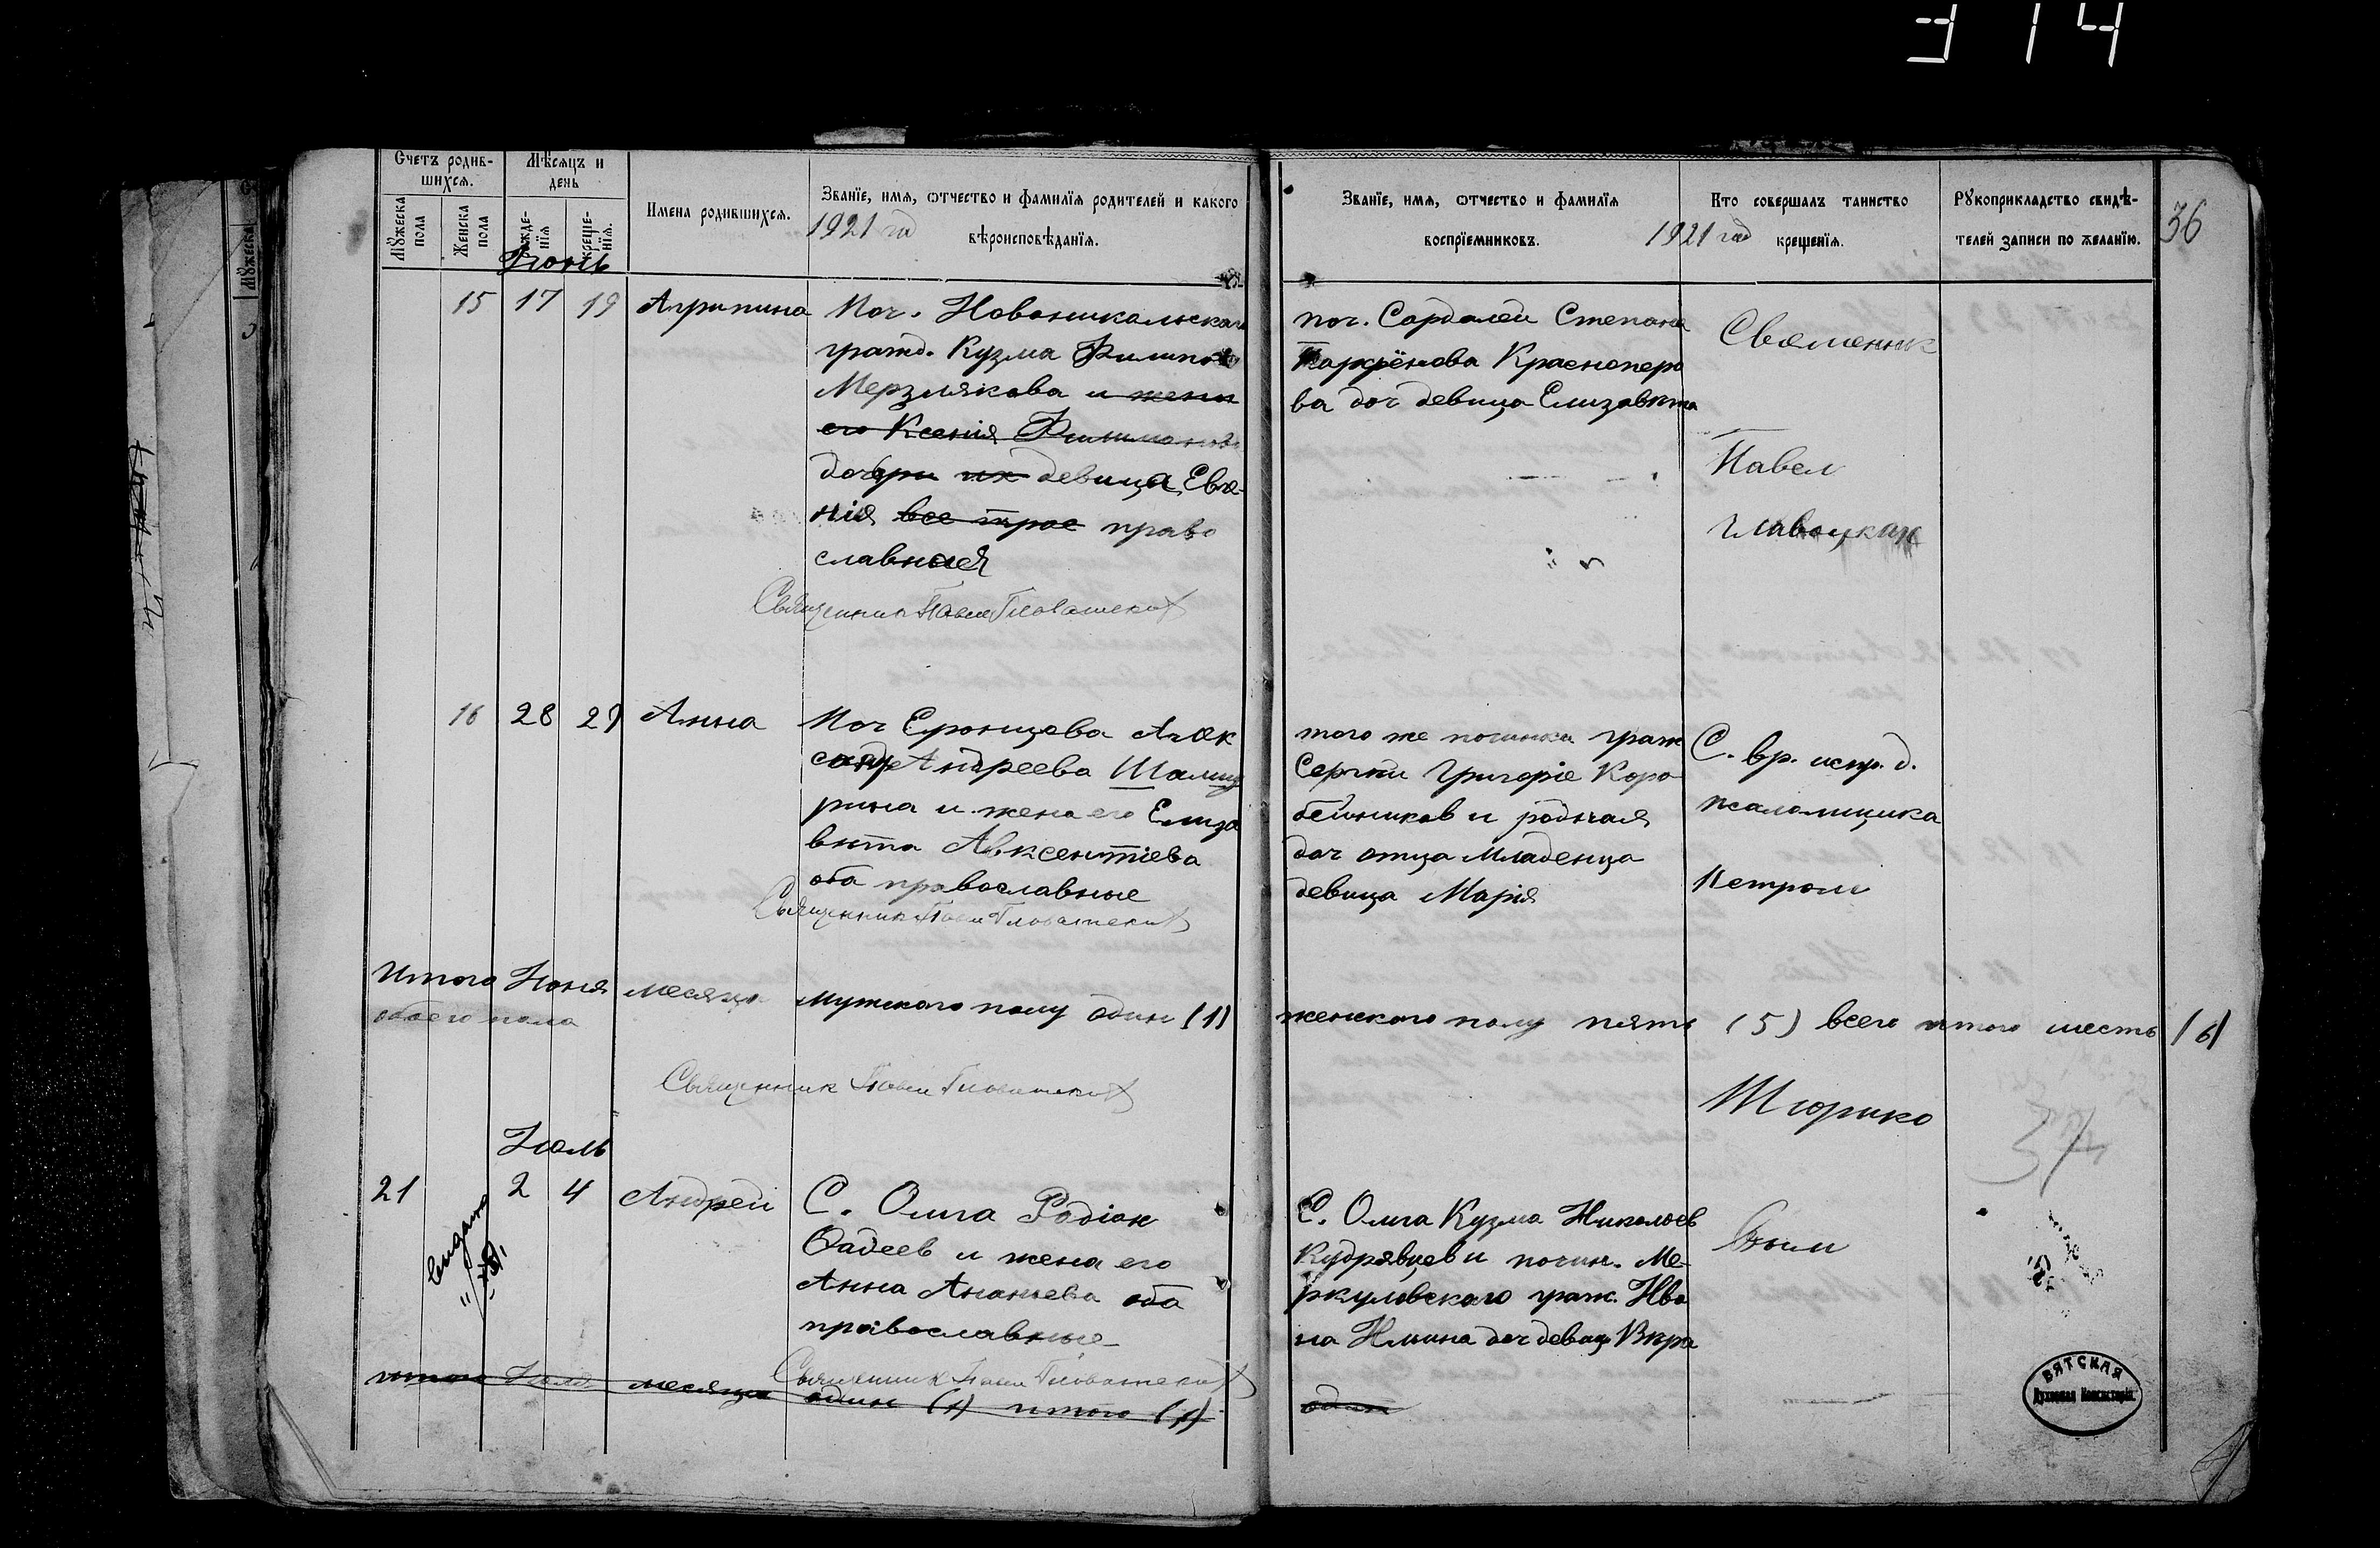 314
Счетъ родив-
шихся.
Мѣсяцъ и
день
Мужеска
пола
Женска
пола
рожде-
нія
креще-
нія.
Имена родившихся.
Званіе, имя, отчество и фамилія родителей и какого
вѣроисповѣданія.
1921 год
Званіе, имя, отчество и фамилія
воспріемниковъ.
1921 год
Кто совершалъ таинство
крещенія.
Рукоприкладство свидѣ-
телей записи по желанію.
36
Июнь
15 17 19 Агрипина
Поч. Новоникольскаго
гражд. Кузма Филипов
Мерзлякова и жены
его Ксения Филимонова
дочери их девица Евге-
нія все трое право
славныя
Священник Павел
поч. Сардалей Степана
Парфёнова Красноперо
ва доч девица Елизавета
Священник
Павел
16 28 29 Анна
Поч Еронцева Алек
сандр Андреева
и жена его Елиза
вѣта Авксентіева
оба православные
Священник Павел
того же починка граж
Сергѣи Григоріе Коро
бейников и родная
доч отца младенца
девица Марія
С. вр. испр. д.
псаломщика
Петром
Итого Июня месяца мужского полу один (1) женского полу пять (5) всего итого шесть (6)
обоего пола
Священник Павел
37
Июль
21 2 4 Андрей
С. Олга Родіон
Фадеев и жена его
Анна Ананьева оба
православные
Священник Павел
С. Олга Кузма Николаев
Кудрявцев и почин. Ме-
ркуловскаго граж. Ива
на Илина доч девиц Вѣра
итого Июля месяца один (1) итого (1)
один
ВЯТСКАЯ
Духовная Консисторія